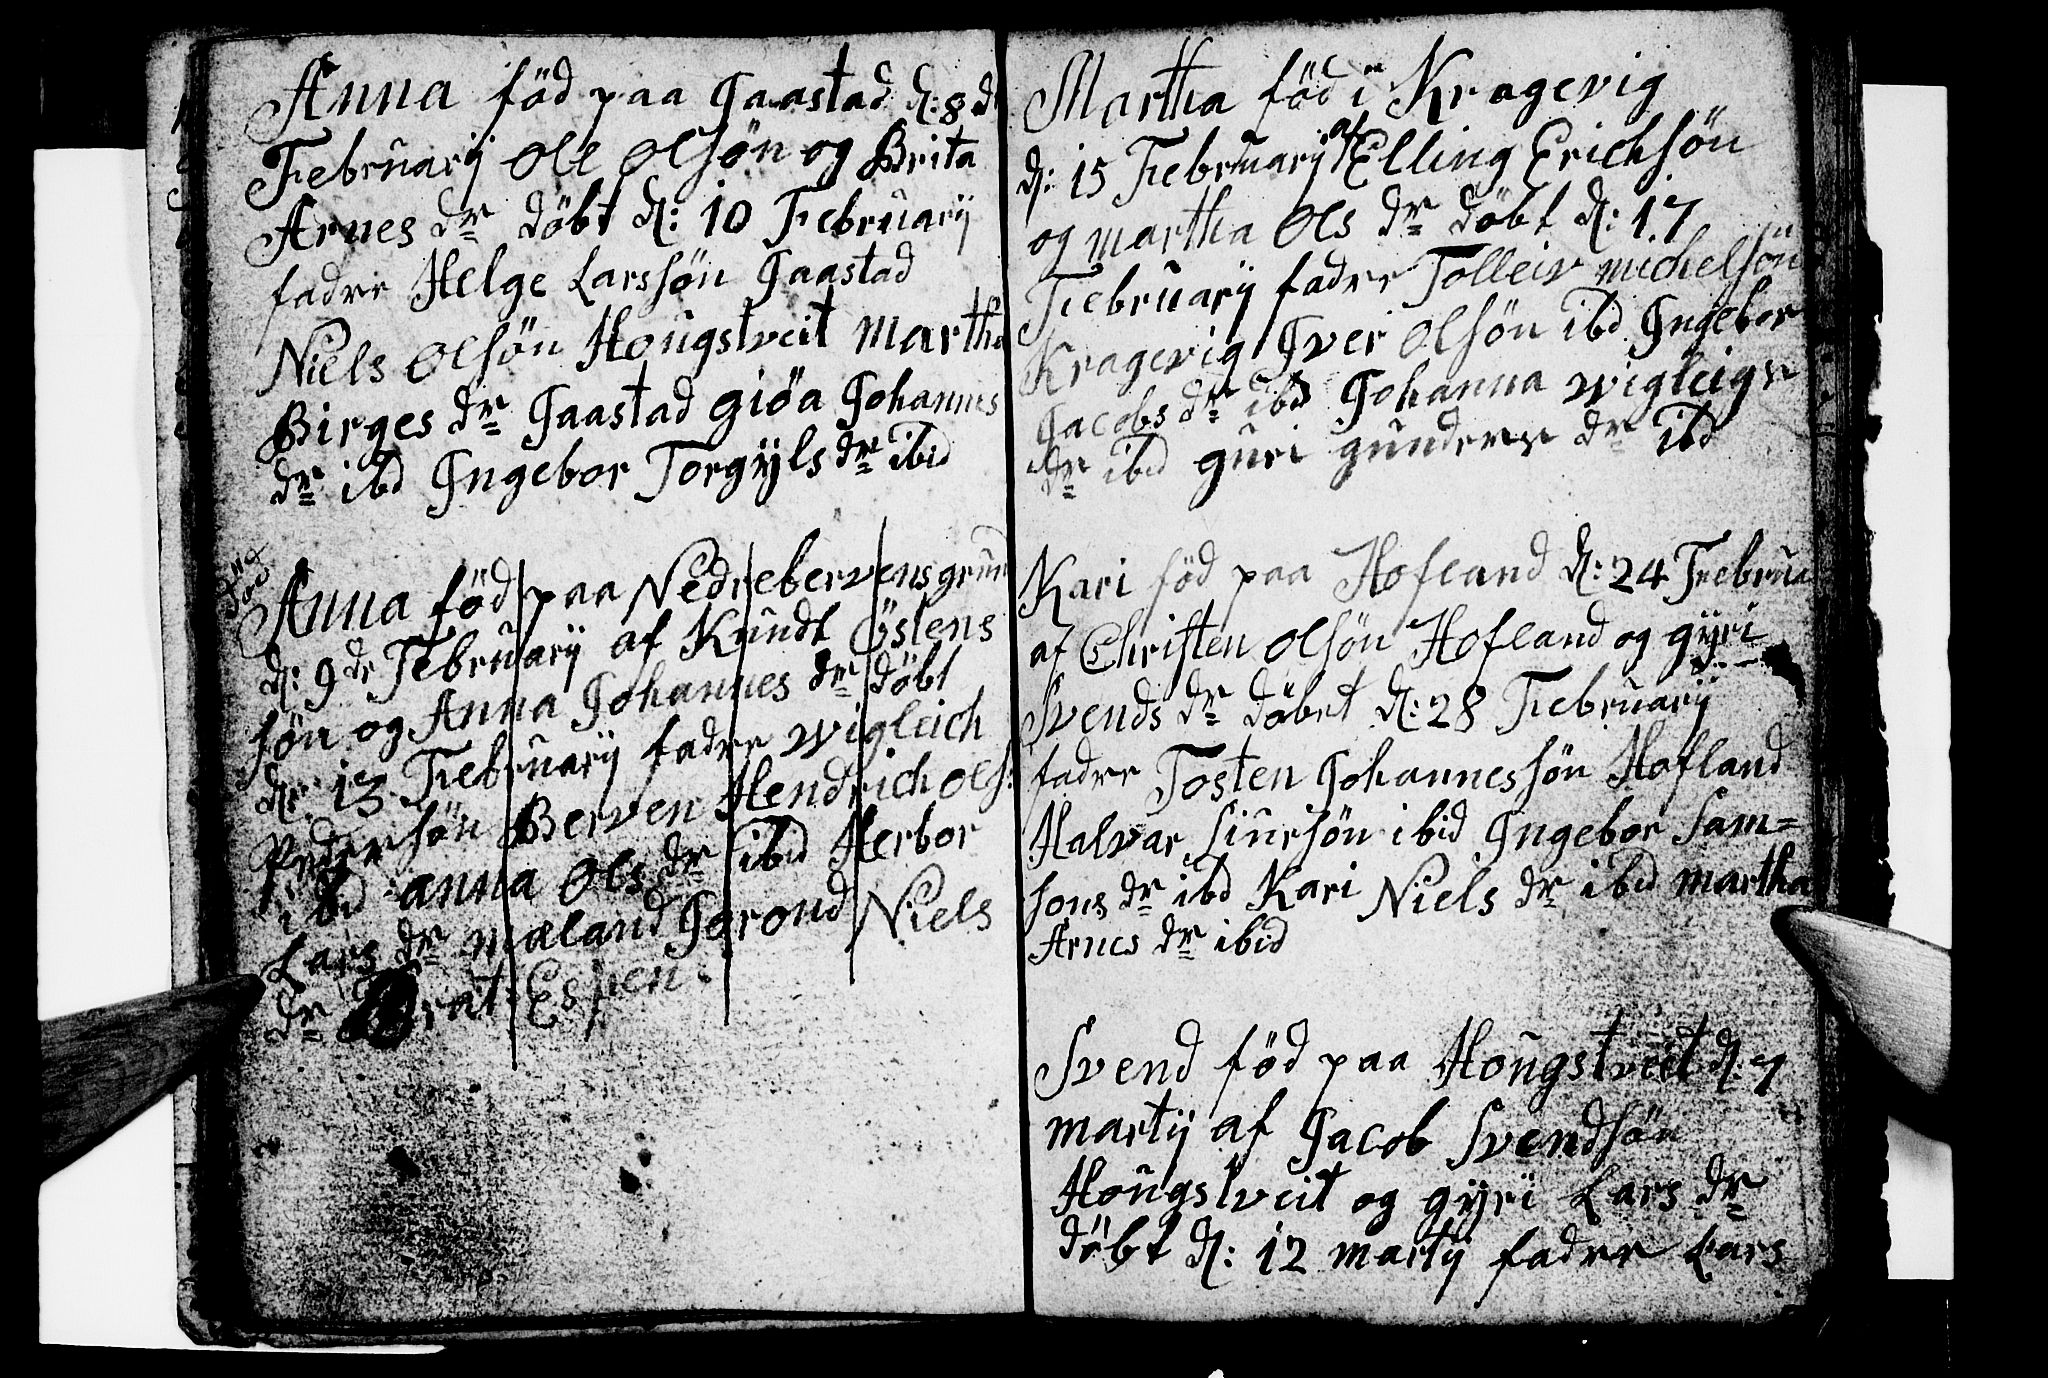 Anna föd paa Gaastad d: 8 d
Februarij Ole Olsön og Brita
Arnes dr döbt d: 10 Februarij
fadrr Helge Larssön Gaastad
Niels Olsön Hougstveit Martha
Birges dr Gaastad giöa Johannes
dr ibd Ingebor Torgÿls dr ibid
Anna föd paa Nedrebervensgrund
d: 9 dr Februarij af Knudt Östens
sön og Anna Johannes dr döbt
d: 13 Februarij fadrr wigleich
Pedersön Berven Hendrich Ols:
ibid anna Ols dr ibid Herbor
Lars dr mæland Gørond Niels
dr Espen
Martha föd i Kragevig
d: 15 Februarij af Elling Erichsön
og martha Ols dr döbt d: 17
Februarij fadrr Tolleiv michelsön
Kragevig Iver Olsön ibd Ingebor
Jacobs dr ibd Johanna wigleigs
dr ibid guri gunders dr ibd
Kari föd paa Hofland d: 24 Februa
af Christen Olsön Hofland og gÿri
Svends dr döbet d: 28 Februarij
fadrr Tosten Johannessön Hofland
Halvar Siursön ibid Ingebor Sam=
sons dr ibd Kari Niels dr ibid martha
Arnes dr ibid
Svend föd paa Hougstveit d: 7
martij af Jacob Svendsön
Hougstveit og gÿri Lars dr
döbt d: 12 martij fadrr Lars